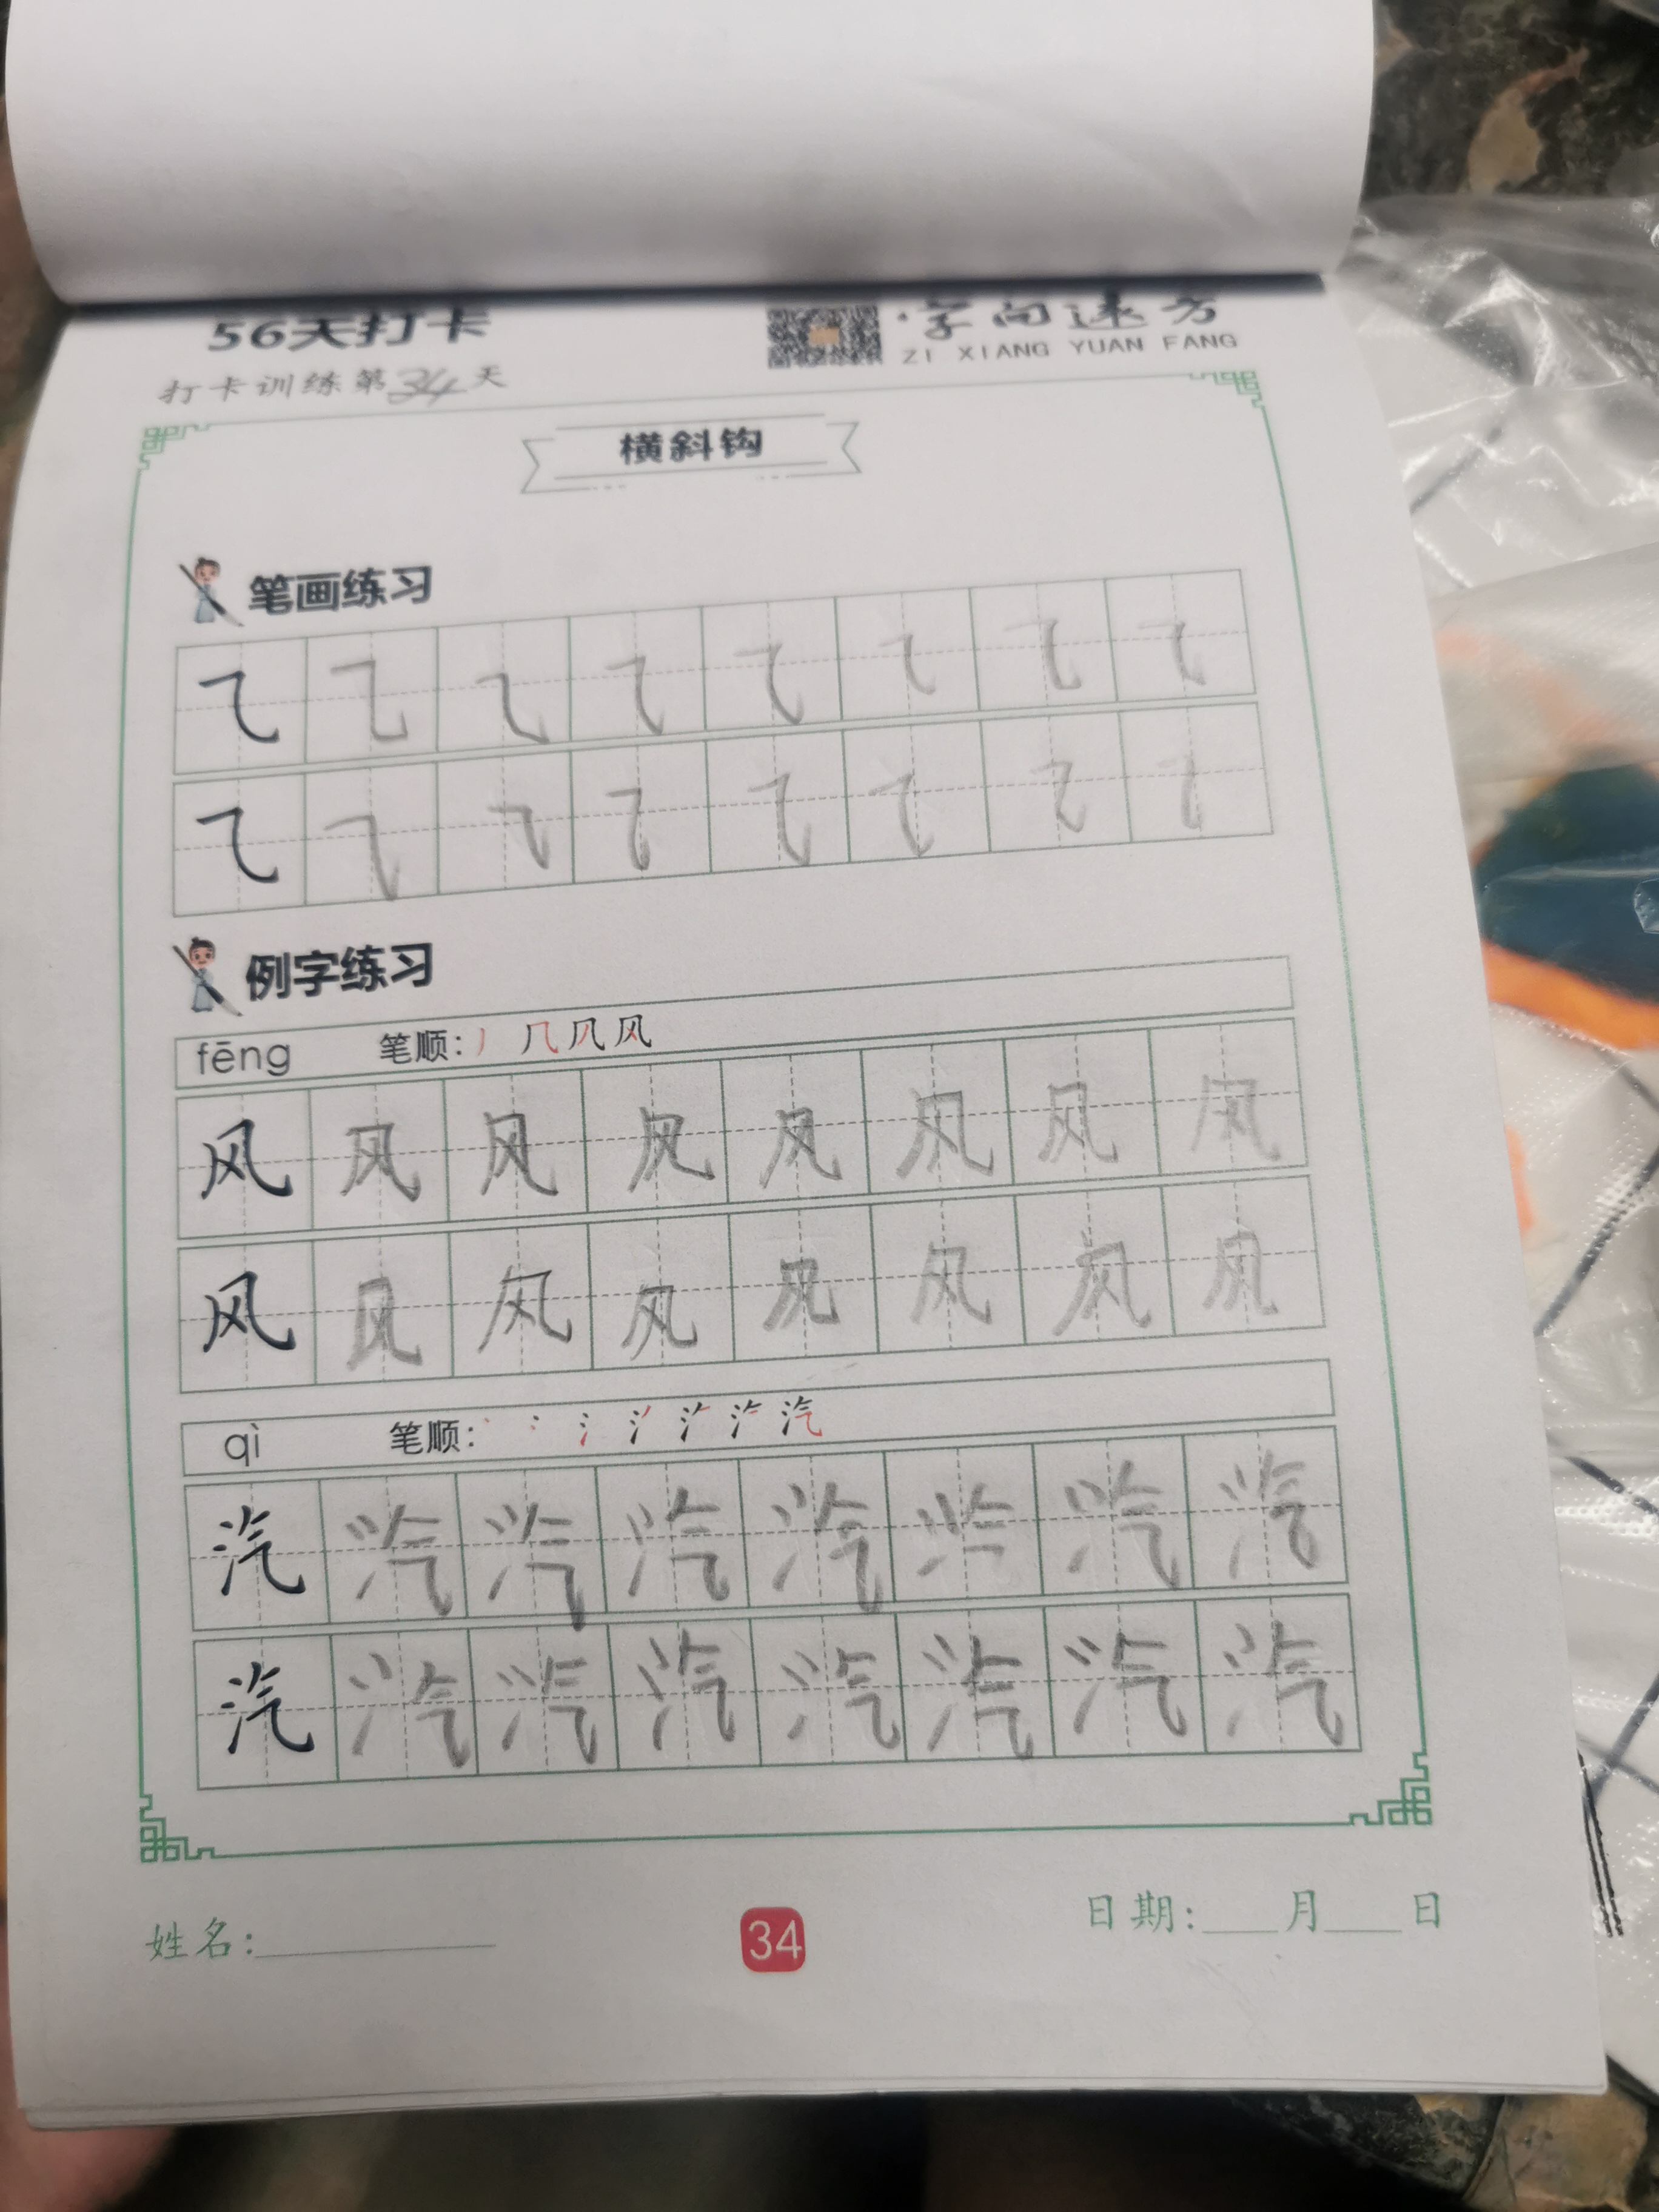 56天打卡
字向远方
ZI XIANG YUAN FANG
打卡训练第34天
横斜钩
笔画练习
例字练习
fēng 笔顺：丿 几 风
风 风 风 风 风 风 风 风
风 风 风 风 风 风 风 风
qì 笔顺： 汽
汽 汽 汽 汽 汽 汽 汽 汽
汽 汽 汽 汽 汽 汽 汽 汽
姓名：
34
日期： 月 日